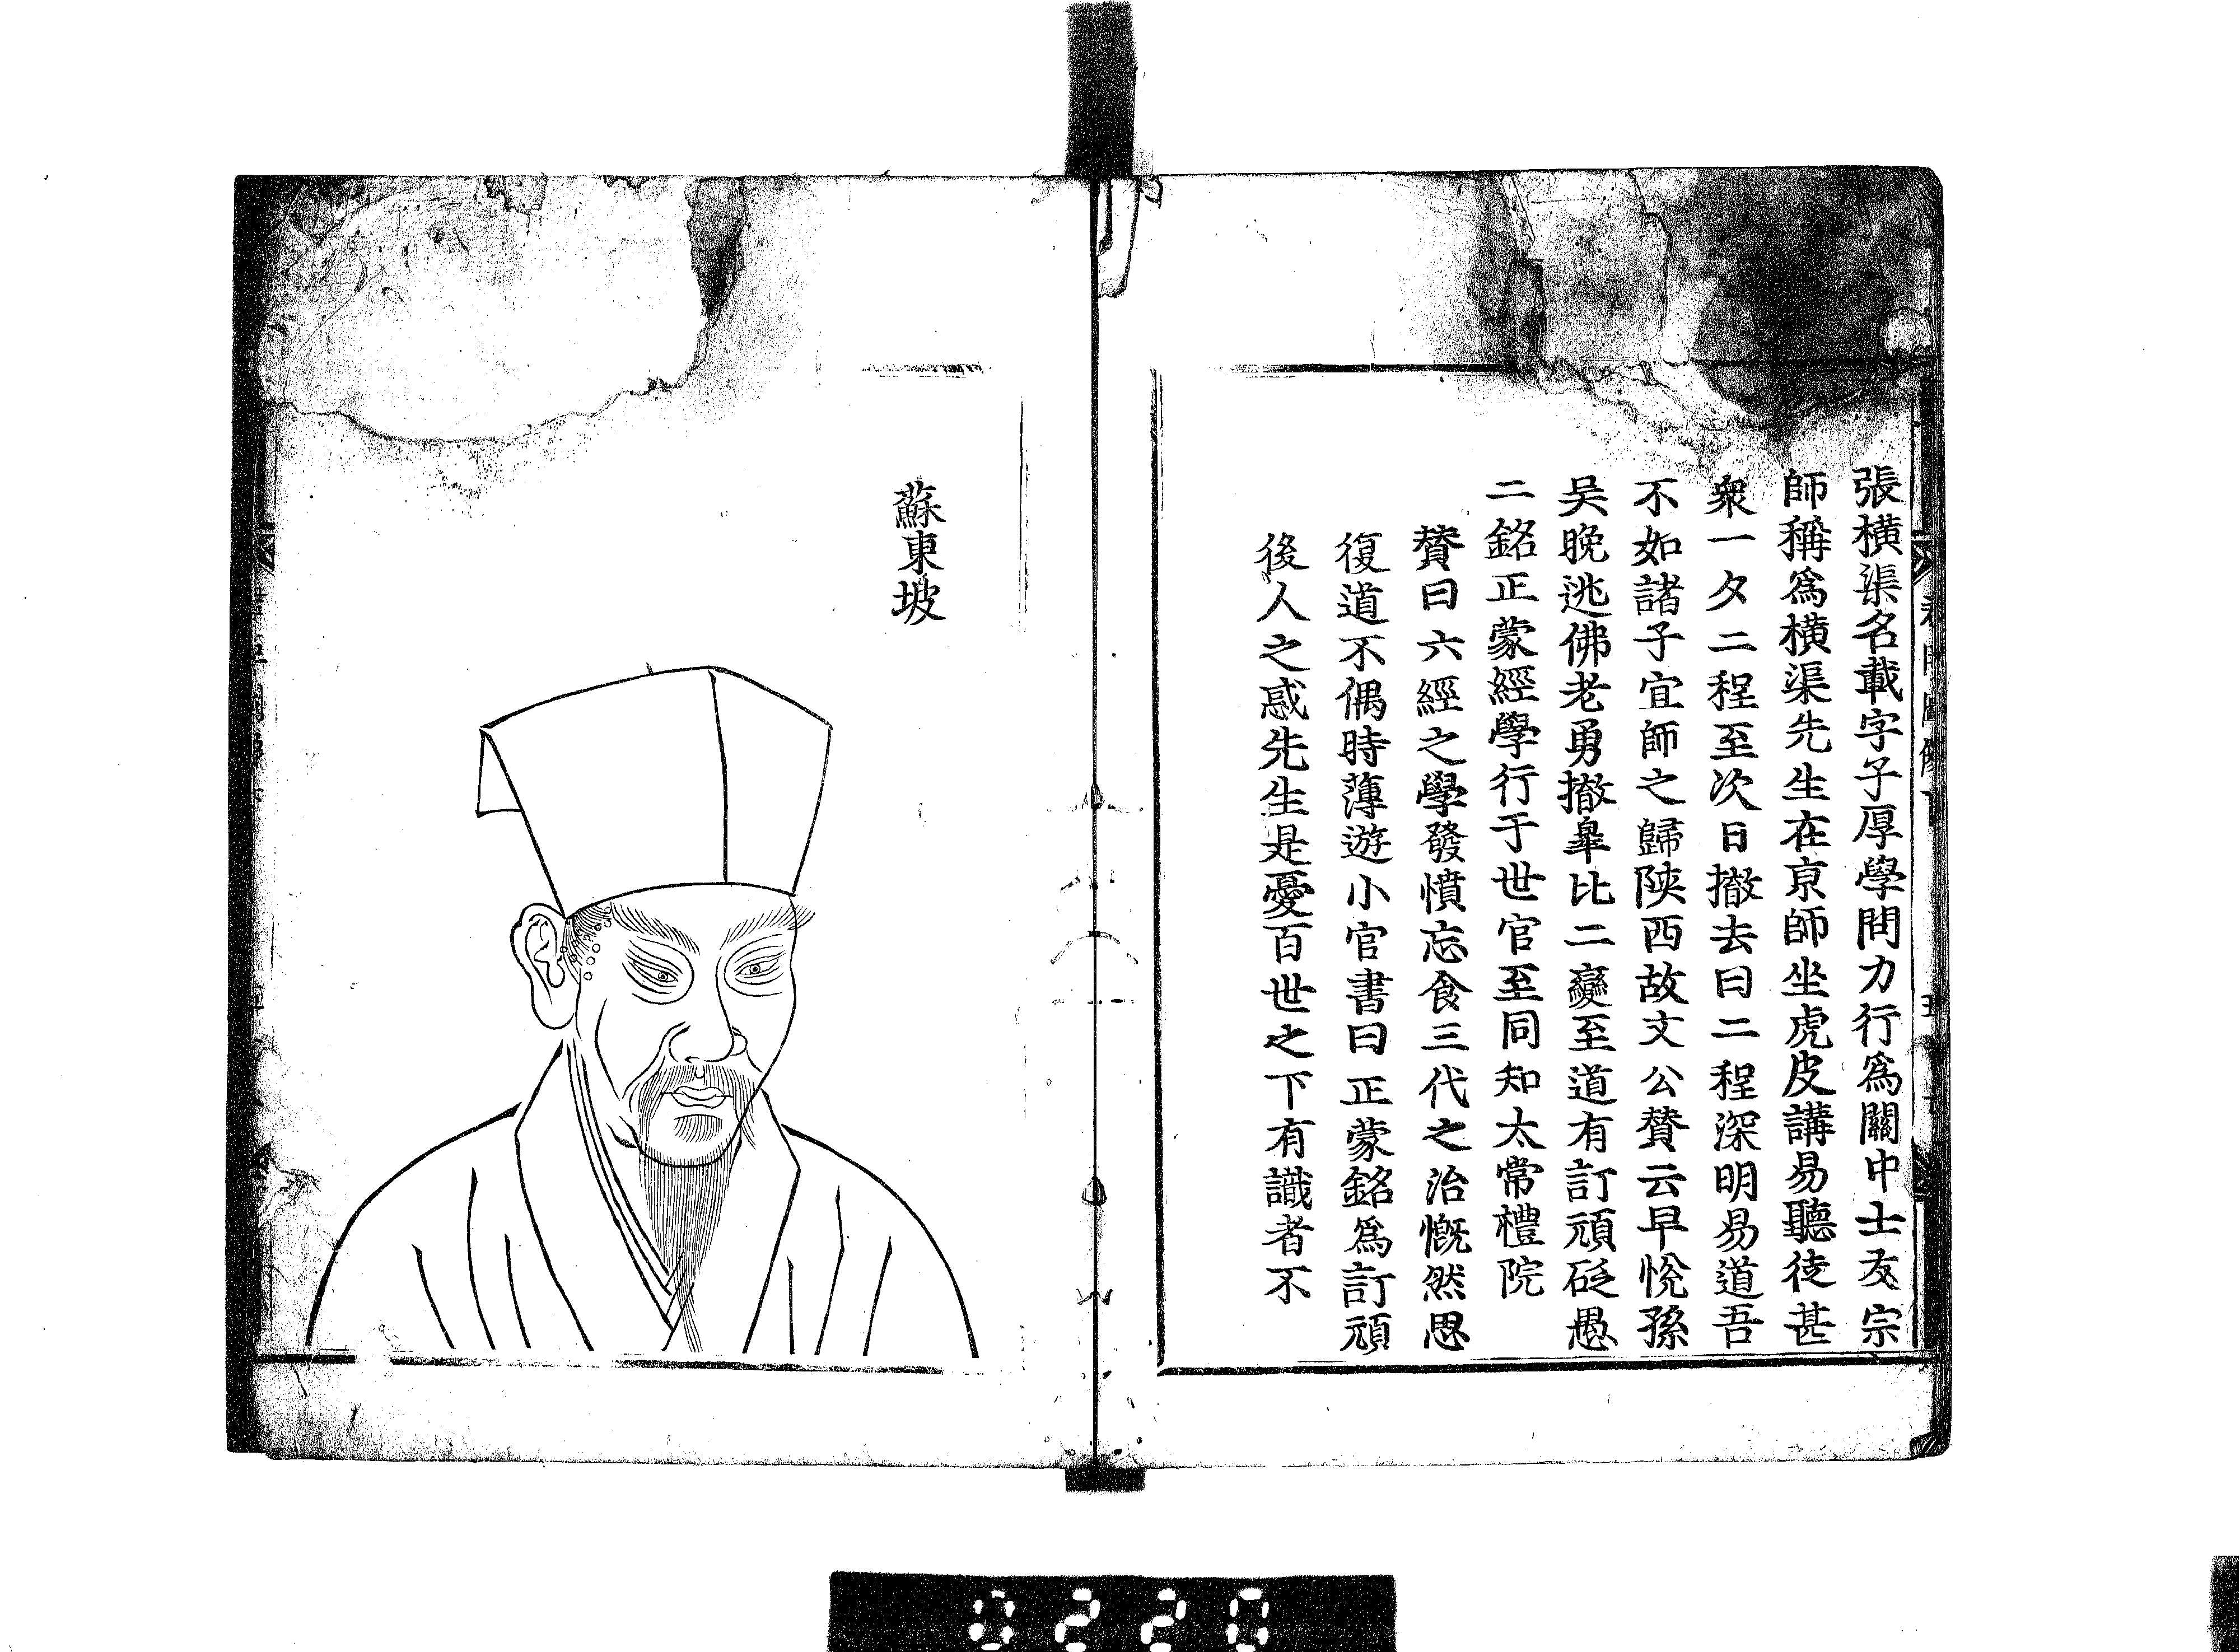 張橫渠名載字子厚學問力行爲關中士友宗
師稱爲橫渠先生在京師坐虎皮講易聽徒甚
衆一夕二程至次日撤去曰二程深明易道吾
不如諸子宜師之歸陜西故文公贊云早悅孫
吴晚逃佛老勇撤臯比二變至道有訂頑砭愚
二銘正蒙經學行于世官至同知太常禮院
贊曰六經之學發憤忘食三代之治慨然思
復道不偶時薄遊小官書曰正蒙銘爲訂頑
後人之惑先生是憂百世之下有識者不
蘇東坡
0220